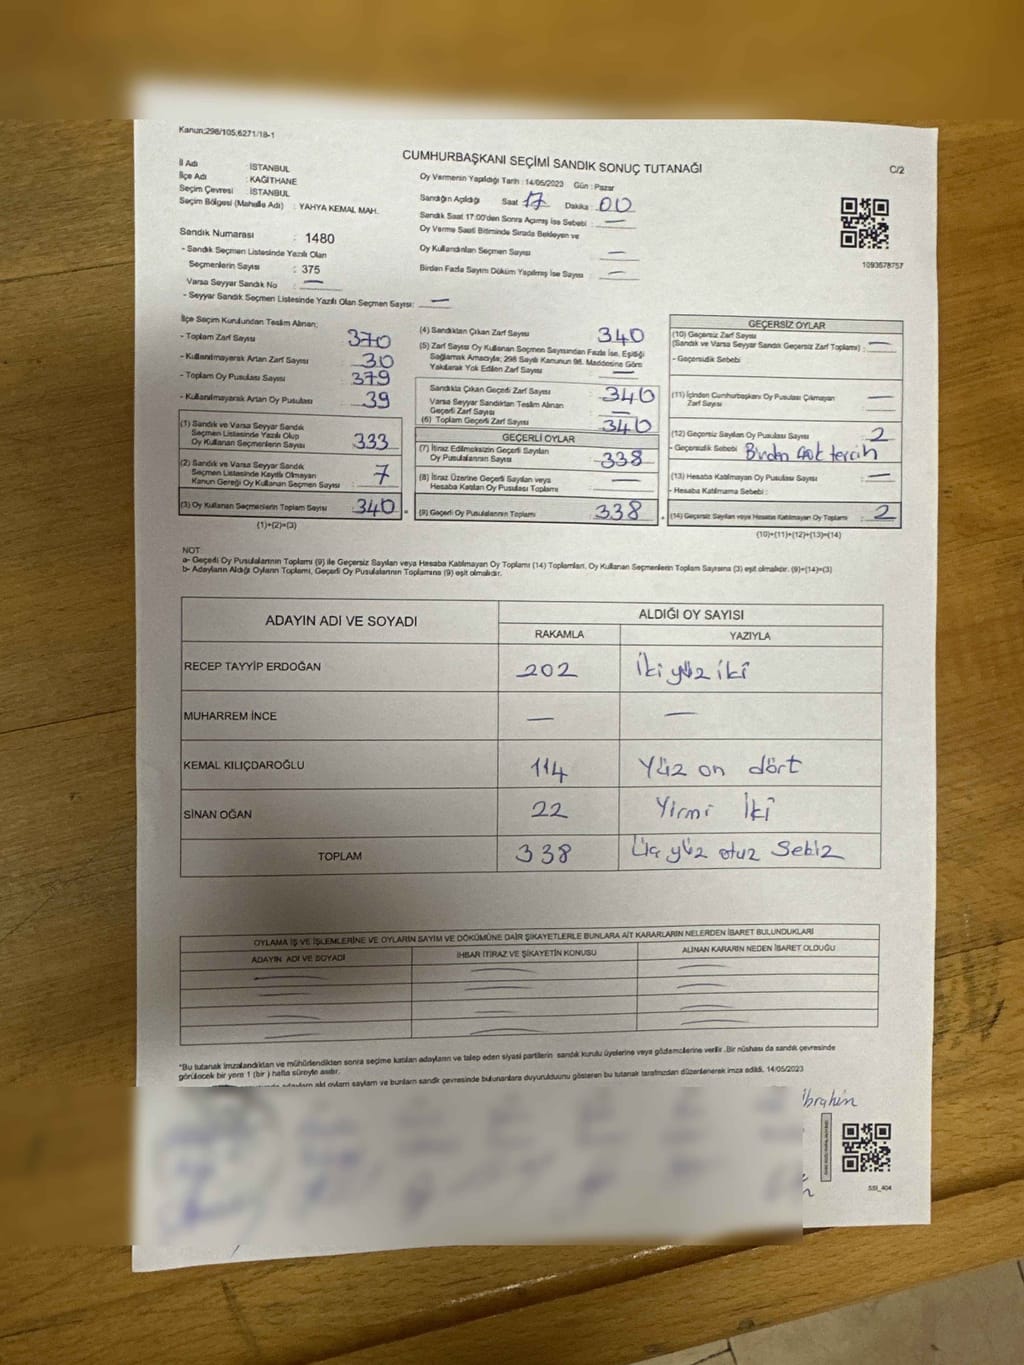 Kanun:298/105,6271/18-1
CUMHURBAŞKANI SEÇİMİ SANDIK SONUÇ TUTANAĞI
C/2
İl Adı : İSTANBUL
İlçe Adı : KAĞITHANE
Seçim Çevresi : İSTANBUL
Seçim Bölgesi (Mahalle Adı) : YAHYA KEMAL MAH.
Sandık Numarası : 1480
- Sandık Seçmen Listesinde Yazılı Olan
Seçmenlerin Sayısı : 375
Varsa Seyyar Sandık No : —
- Seyyar Sandık Seçmen Listesinde Yazılı Olan Seçmen Sayısı: —
Oy Vermenin Yapıldığı Tarih : 14/05/2023 Gün : Pazar
Sandığın Açıldığı Saat 17 Dakika : 00
Sandık Saat 17:00'den Sonra Açılmış İse Sebebi : —
Oy Verme Saati Bitiminde Sırada Bekleyen ve
Oy Kullandırılan Seçmen Sayısı —
Birden Fazla Sayım Döküm Yapılmış İse Sayısı : —
1093678757
İlçe Seçim Kurulundan Teslim Alınan;
- Toplam Zarf Sayısı 370
- Kullanılmayarak Artan Zarf Sayısı 30
- Toplam Oy Pusulası Sayısı 379
- Kullanılmayarak Artan Oy Pusulası 39
(1) Sandık ve Varsa Seyyar Sandık
Seçmen Listesinde Yazılı Olup
Oy Kullanan Seçmenlerin Sayısı 333
(2) Sandık ve Varsa Seyyar Sandık
Seçmen Listesinde Kayıtlı Olmayan
Kanun Gereği Oy Kullanan Seçmen Sayısı : 7
(3) Oy Kullanan Seçmenlerin Toplam Sayısı : 340 =
(1)+(2)=(3)
(4) Sandıktan Çıkan Zarf Sayısı 340
(5) Zarf Sayısı Oy Kullanan Seçmen Sayısından Fazla İse, Eşitliği
Sağlamak Amacıyla; 298 Sayılı Kanunun 98. Maddesine Göre
Yakılarak Yok Edilen Zarf Sayısı —
Sandıkta Çıkan Geçerli Zarf Sayısı 340
Varsa Seyyar Sandıktan Teslim Alınan
Geçerli Zarf Sayısı —
(6) Toplam Geçerli Zarf Sayısı 340
GEÇERLİ OYLAR
(7) İtiraz Edilmeksizin Geçerli Sayılan
Oy Pusulalarının Sayısı : 338
(8) İtiraz Üzerine Geçerli Sayılan veya
Hesaba Katılan Oy Pusulası Toplamı —
(9) Geçerli Oy Pusulalarının Toplamı : 338 +
GEÇERSİZ OYLAR
(10) Geçersiz Zarf Sayısı
(Sandık ve Varsa Seyyar Sandık Geçersiz Zarf Toplamı) : —
- Geçersizlik Sebebi
(11) İçinden Cumhurbaşkanı Oy Pusulası Çıkmayan
Zarf Sayısı —
(12) Geçersiz Sayılan Oy Pusulası Sayısı 2
- Geçersizlik Sebebi Birden çok tercih
(13) Hesaba Katılmayan Oy Pusulası Sayısı : —
- Hesaba Katılmama Sebebi :
(14) Geçersiz Sayılan veya Hesaba Katılmayan Oy Toplamı : 2
(10)+(11)+(12)+(13)=(14)
NOT
a- Geçerli Oy Pusulalarının Toplamı (9) ile Geçersiz Sayılan veya Hesaba Katılmayan Oy Toplamı (14) Toplamları, Oy Kullanan Seçmenlerin Toplam Sayısına (3) eşit olmalıdır. (9)+(14)=(3)
b- Adayların Aldığı Oyların Toplamı, Geçerli Oy Pusulalarının Toplamına (9) eşit olmalıdır.
ADAYIN ADI VE SOYADI ALDIĞI OY SAYISI
RAKAMLA YAZIYLA
RECEP TAYYİP ERDOĞAN 202 İki yüz iki
MUHARREM İNCE — —
KEMAL KILIÇDAROĞLU 114 Yüz on dört
SİNAN OĞAN 22 Yirmi İki
TOPLAM 338 Üç yüz otuz Sekiz
OYLAMA İŞ VE İŞLEMLERİNE VE OYLARIN SAYIM VE DÖKÜMÜNE DAİR ŞİKAYETLERLE BUNLARA AİT KARARLARIN NELERDEN İBARET BULUNDUKLARI
ADAYIN ADI VE SOYADI İHBAR İTİRAZ VE ŞİKAYETİN KONUSU ALINAN KARARIN NEDEN İBARET OLDUĞU
*Bu tutanak imzalandıktan ve mühürlendikten sonra seçime katılan adayların ve talep eden siyasi partilerin sandık kurulu üyelerine veya gözlemcilerine verilir. Bir nüshası da sandık çevresinde
görülecek bir yere 1 (bir ) hafta süreyle asılır.
adayların aldı oyların sayların ve bunların sandık çevresinde bulunanlara duyurulduunu gösteren bu tutanak tarafınızdan düzenlenerek imza edildi. 14/05/2023
İbrahim
SSI_404